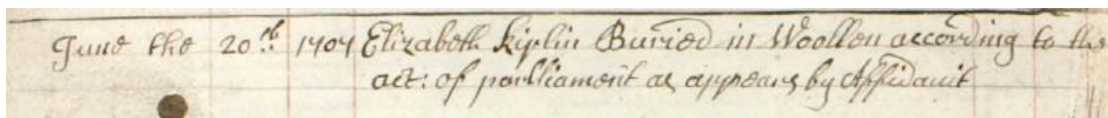 June the 20th 1707 Elizabeth Kiplin Buried in Woollen according to the
act: of parlliament as appears by Affidavit